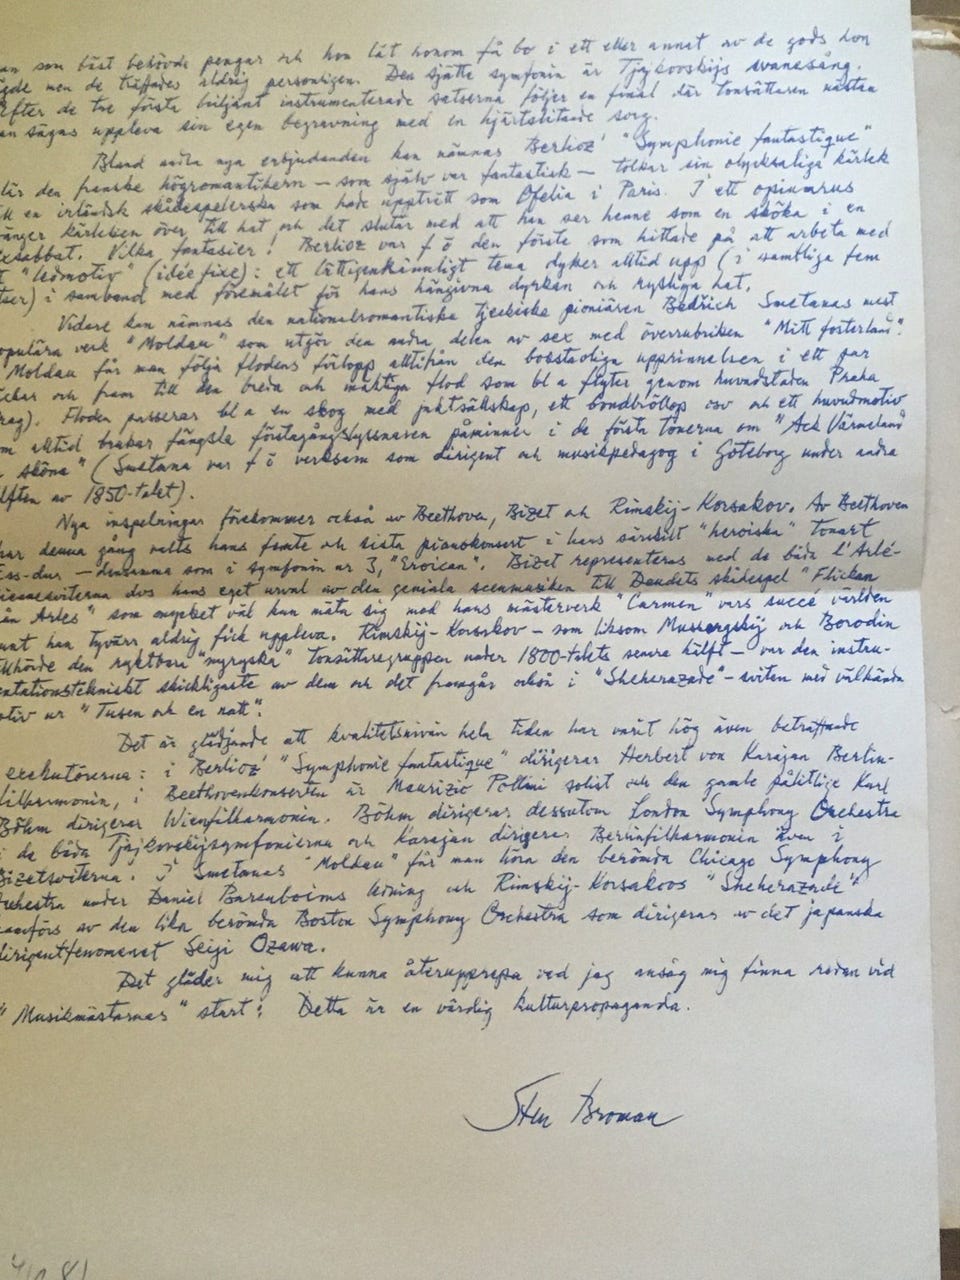 som bäst behövde pengar och hon lät honom få bo i ett eller annat av de gods hon
ägde men de träffades aldrig personligen. Den sjätte symfonin är Tjajkovskijs svanesång.
Efter de tre första briljant instrumenterade satserna följer en final där tonsättaren nästan
sägas uppleva sin egen begravning med en hjärtslitande sorg.
Bland andra nya erbjudanden kan nämnas Berlioz' "Symphonie fantastique"
där den franske högromantikern – som själv var fantastisk – tolkar sin olycksaliga kärlek
en irländsk skådespelerska som hade uppträtt som Ofelia i Paris. I ett opiumrus
kärleken över till hat och det slutar med att han ser henne som en sköka i en
Vilka fantasier! Berlioz var f ö den förste som hittade på att arbeta med
"ledmotiv" (idée fixe): ett lättigenkännligt tema dyker alltid upp (i samtliga fem
i samband med föremålet för hans hängivna dyrkan och rysliga hat.
Vidare kan nämnas den nationalromantiske tjeckiske pionjären Bedřich Smetanas mest
populära verk "Moldau" som utgör den andra delen av sex med överrubriken "Mitt fosterland".
"Moldau får man följa flodens förlopp alltifrån den boss uppriннelsen i ett par
och fram till den breda och mäktiga flod som bl a flyter genom huvudstaden Praha
Floden passerar bl a en skog med jaktsällskap, ett bondbröllop osv och ett huvudmotiv
alltid brukar fängsla förstagångslyssnaren påminner i de första tonerna om "Ack Värmeland
sköna" (Smetana var f ö verksam som dirigent och musikpedagog i Göteborg under andra
av 1850-talet).
Nya inspelningar förekommer också av Beethoven, Bizet och Rimskij-Korsakov. Av Beethoven
har denna gång valts hans femte och sista pianokonsert i hans särskilt "heroiska" tonart
Ess-dur – densamma som i symfonin nr 3, "Eroican". Bizet representeras med de båda l'Arlé-
siennesviterna dvs hans eget urval av den geniala scenmusiken till Daudets skådespel "Flickan
från Arles" som mycket väl kan mäta sig med hans mästerverk "Carmen" vars succé världen
runt han tyvärr aldrig fick uppleva. Rimskij-Korsakov – som liksom Mussorgskij och Borodin
tillhörde den ryktbara "nyryska" tonsättargruppen under 1800-talets senare hälft – var den instru-
mentationstekniskt skickligaste av dem och det framgår också i "Sheherazade"-sviten med välkända
motiv ur "Tusen och en natt".
Det är glädjande att kvalitetsnivån hela tiden har varit hög även beträffande
exekutörerna: i Berlioz' "Symphonie fantastique" dirigerar Herbert von Karajan Berlin-
filharmonin, i Beethovenkonserten är Maurizio Pollini solist och den gamle pålitlige Karl
Böhm dirigerar Wienfilharmonin. Böhm dirigerar dessutom London Symphony Orchestra
i de båda Tjajkovskijsymfonierna och Karajan dirigerar Berlinfilharmonin även i
Bizetsviterna. I Smetanas "Moldau" får man höra den berömda Chicago Symphony
Orchestra under Daniel Barenboims ledning och Rimskij-Korsakovs "Sheherazade"
framförs av den lika berömda Boston Symphony Orchestra som dirigeras av det japanska
dirigentfenomenet Seiji Ozawa.
Det gläder mig att kunna återupprepa vad jag ansåg mig finna redan vid
"Musikmästarnas" start: Detta är en värdig kulturpropaganda.
Sten Broman